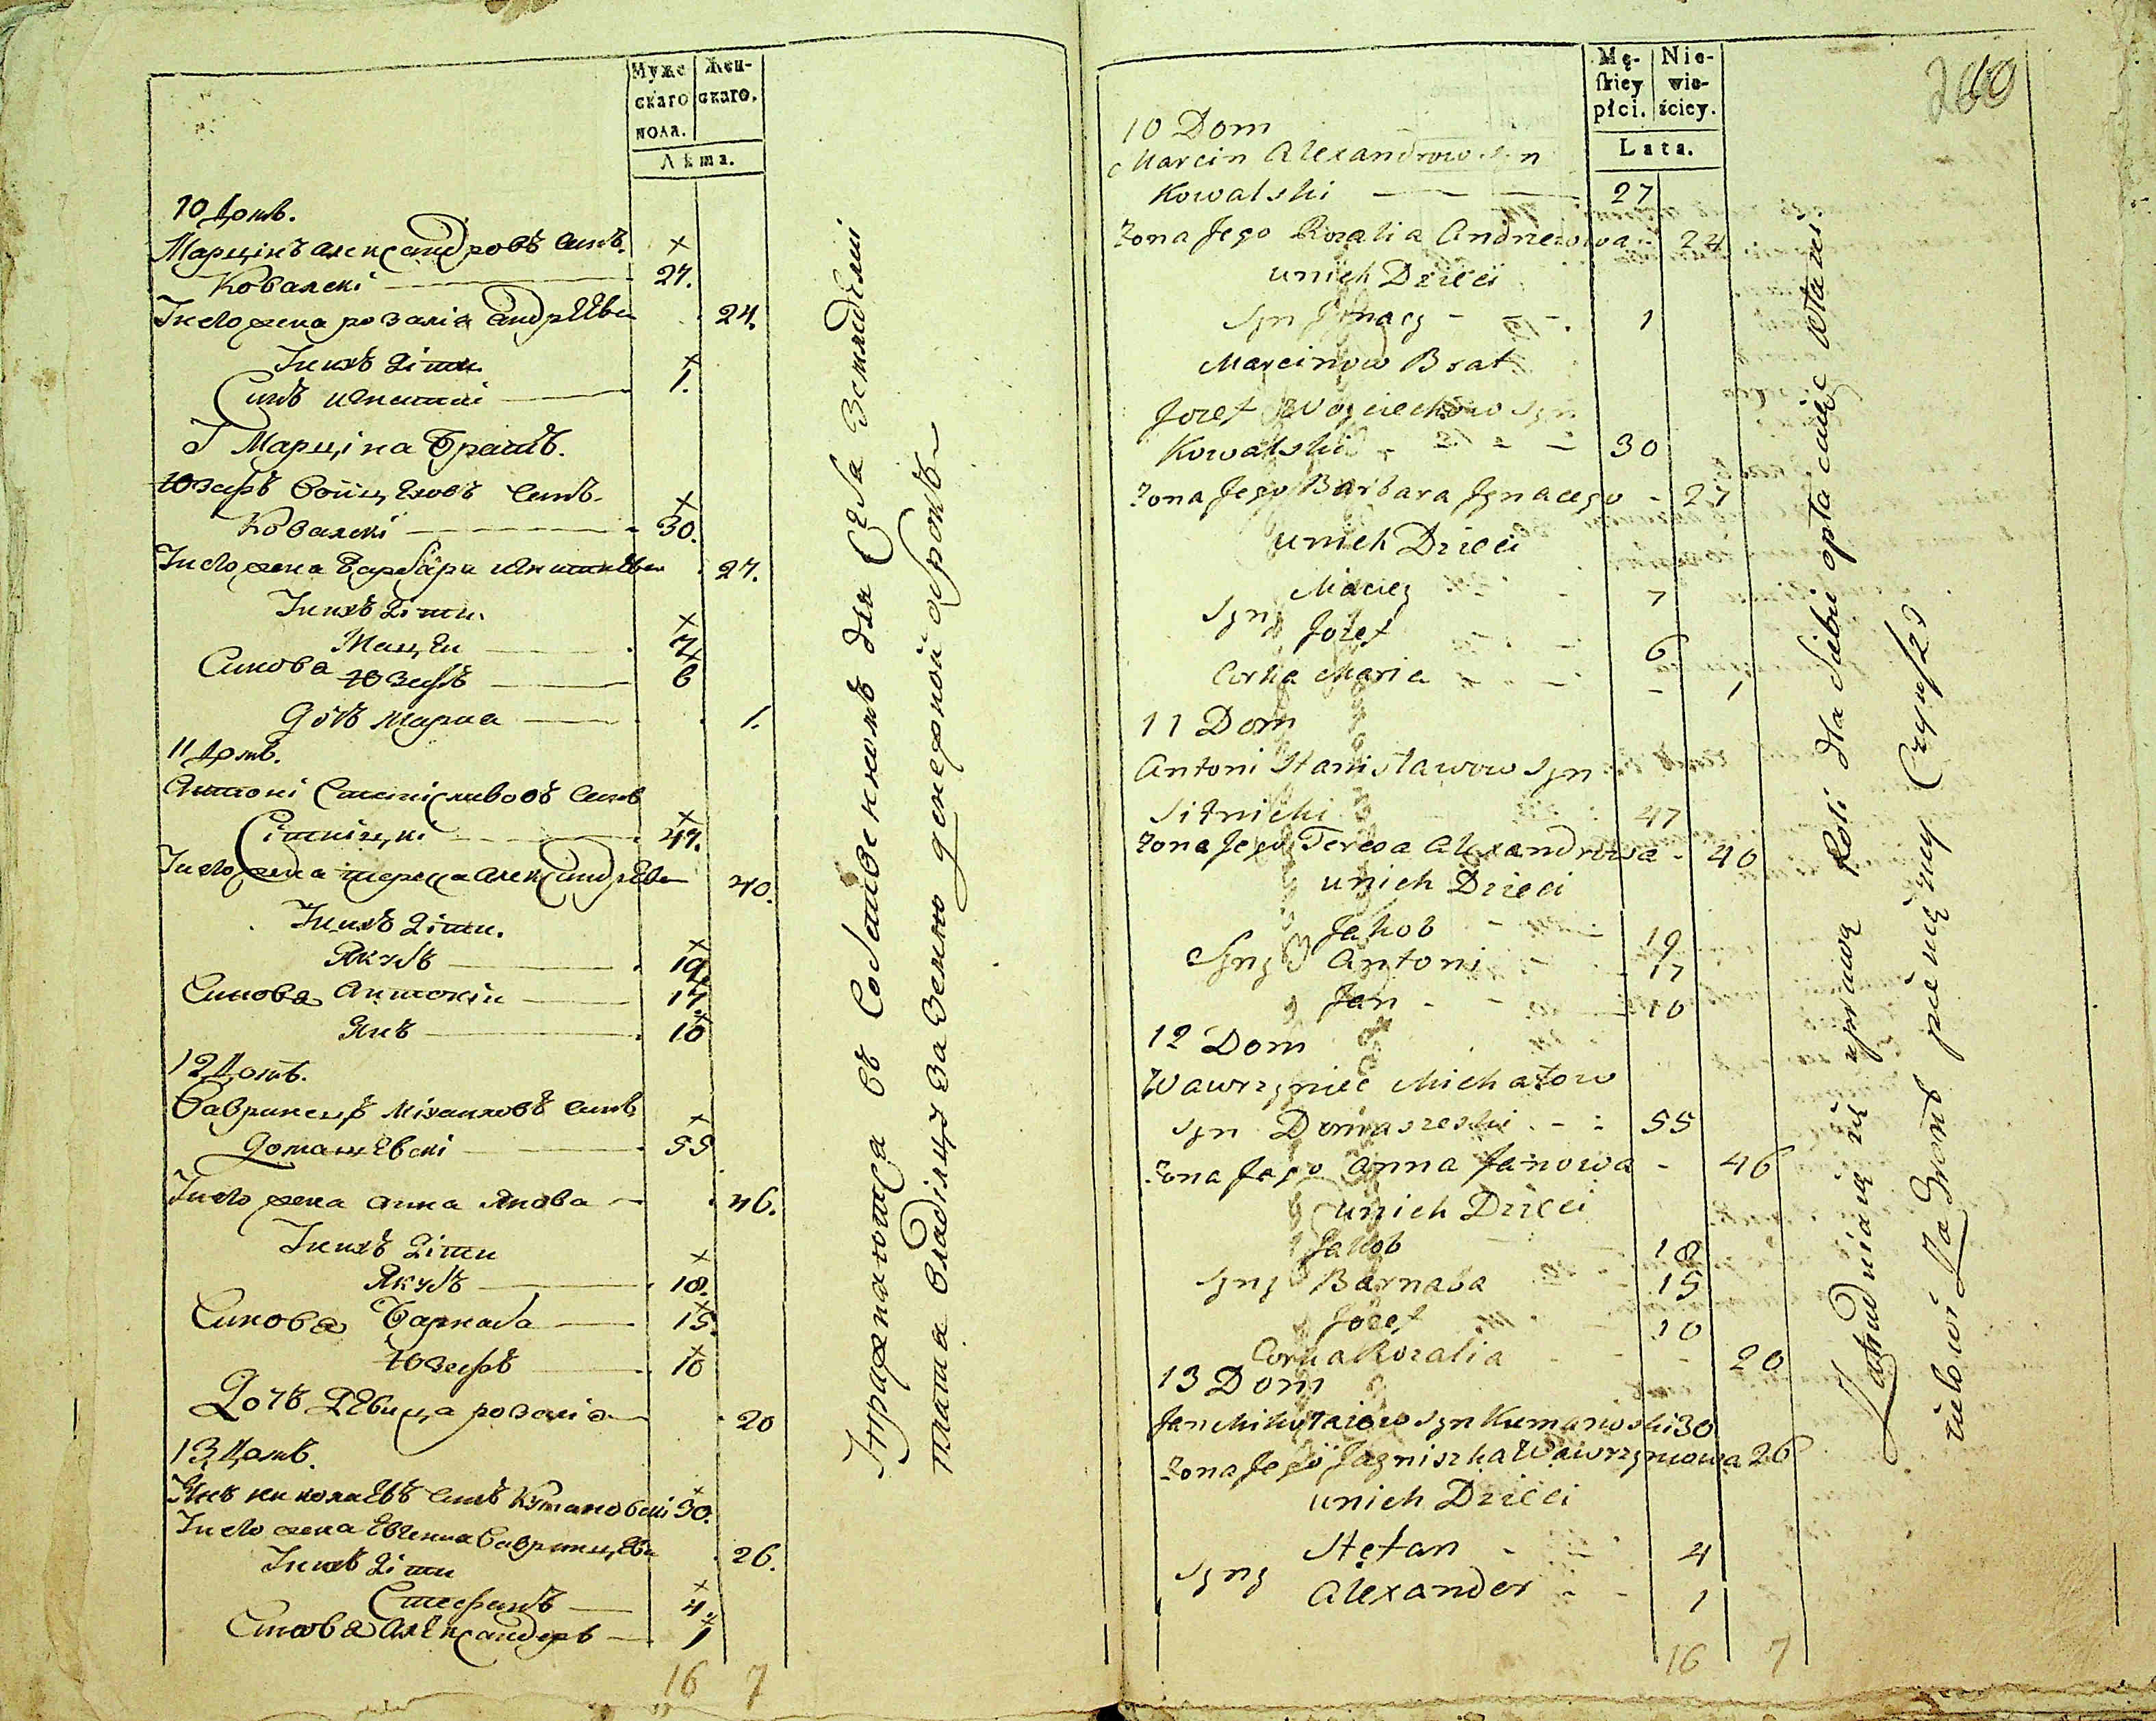 Муже
скаго
пола.
Жен-
скаго.
Лѣта.
10 Домъ.
Марцінъ Александровъ Синъ
Ковалскі 27.
Іиего жена розаліа Андрѣева 24.
Інихъ діти
Синъ игнатій 1.
І Марціна Братъ.
Юзефъ Войцѣховъ Синъ
Ковалскі 30.
Іиего жена Барбара игнатева 27.
Інихъ діти.
Мацѣи 7
Синова
Юзефъ 6
Дочъ Мариа 1.
11 Домъ.
Антоні Станіславовъ Синъ
Сітніцкі 47.
Іиего жена тереса Александрѣва 40.
Інихъ діти.
Якубъ 19
Синова Антоніи 17.
Янъ 10
12 Домъ.
Вавринецъ Міхаиловъ Синъ
Домашевскі 55
Іиего жена Анна Янова 46.
Інихъ діти
Якубъ 18.
Синова Барнаба 15.
Юзефъ 10
Дочъ Дѣвица розаліа 20
13 Домъ.
Янъ николаевъ Синъ Кумановскі 30.
Іиего жена Вавринцѣва 26.
Інихъ діти
Стефанъ 4
Синова Александеръ 1
16 7
для Себа Земледѣлиі
плата владілцу За Землю
260
Mę-
skiey
płci.
Nie-
wie-
ściey.
Lata.
10 Dom
Marcin Alexandrow Syn
Kowalski 27
Zona Jego Rozalia Andrzeiowa 24
unich Dzieci
Syn Jgnacy 1
Marcinow Brat
Jozef Woyciechow Syn
Kowalski 30
Zona Jego Barbara Jgnacego 27
unich Dzieci
Maciey 7
Syny
Jozef 6
Corka Maria 1
11 Dom
Antoni Stanisławow Syn
Sitnicki 47
Zona Jego Teresa Alexandrowa 40
unich Dzieci
Jakob 19
Syny Antoni 17
Jan 10
12 Dom
Wawrzyniec Michałow
Syn Domaszeski 55
Zona Jego Anna Janowa 46
unich Dzieci
Jakob 18
Syny Barnaba 15
Jozef 10
Corka Rozalia 20
13 Dom
Jan Mikołaiow Syn Kumanowski 30
Zona Jego Jagniszka Wawrzyncowa 26
unich Dzieci
Stefan 4
Syny
Alexander 1
16 7
Zatrudniaią się uprawą Roli dla Siebie opłacaiąc właści
cielowi Za Gront pieniężny Czynsz